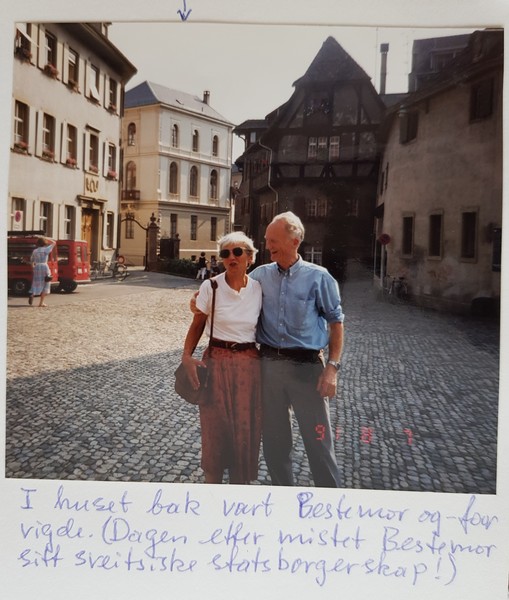 91 8 7
I huset bak vart Bestemor og -far
vigde. (Dagen etter mistet Bestemor
sitt sveitsiske statsborgerskap!)